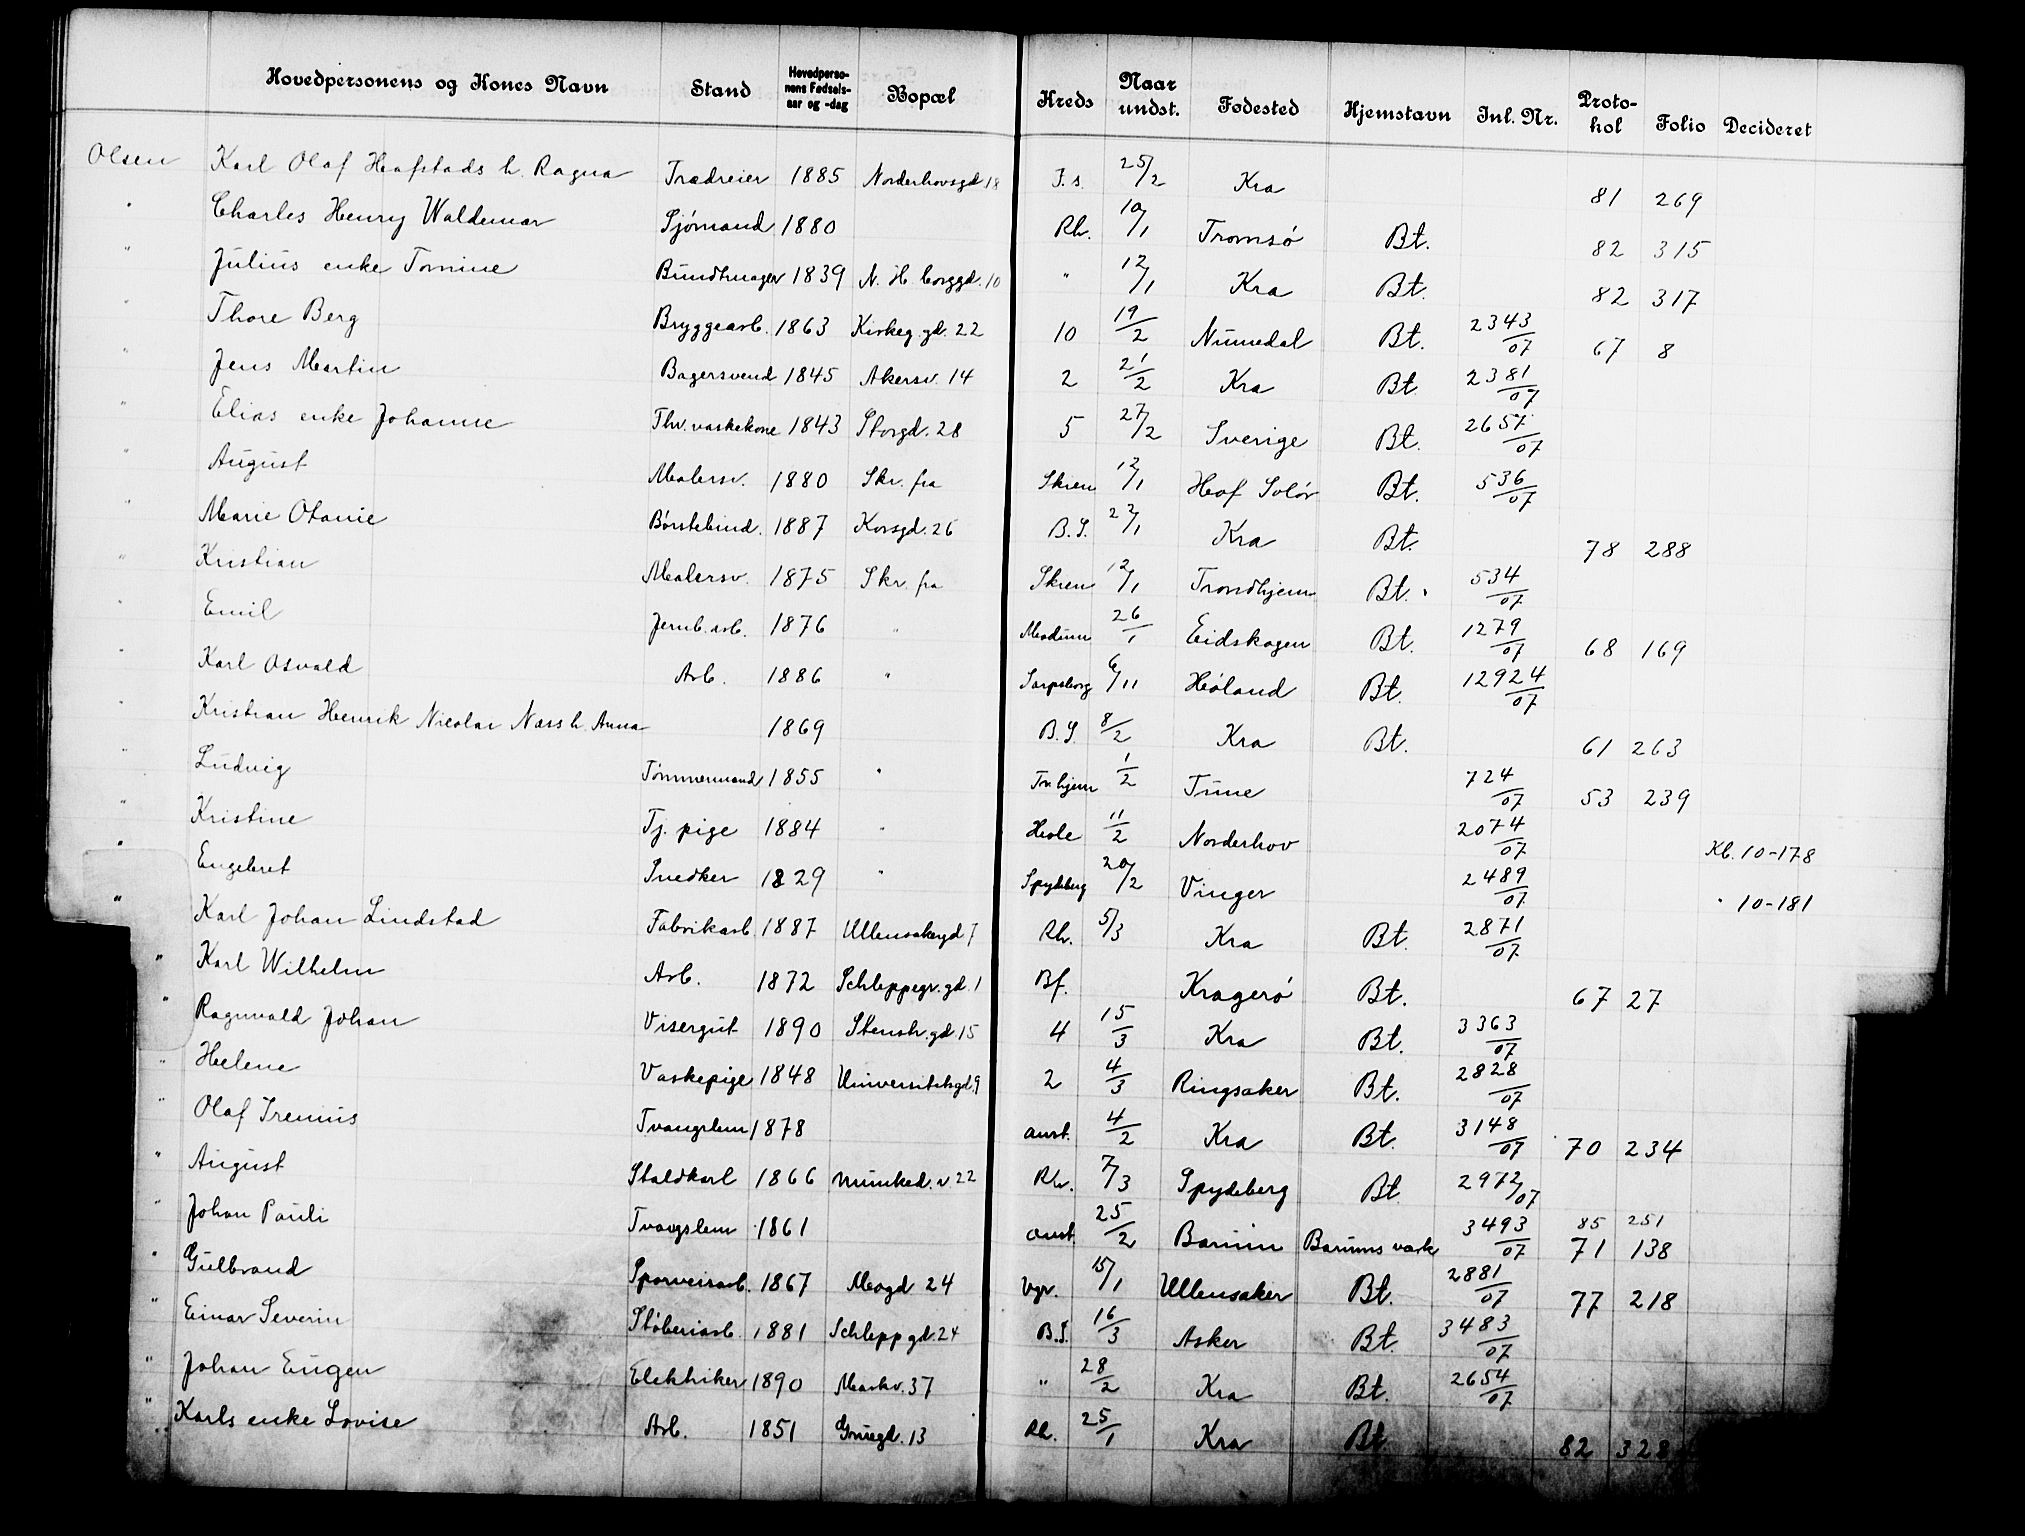 Hovedpersonens og Kones Navn Stand Hovedperso-nens Fødsels-aar og -dag Bopæl Kreds Naar undst. Fødested Hjemstavn Inl. Nr. Proto-kol Folio Decideret
Olsen Karl Olaf Hafstads h. Ragna 1885 Norderhovsgd 18 F.s. 25/2 Kra 81 269
" Charles Henry Waldemar Sjømand 1880 Rh. 10/1 Tromsø Bt. 82 315
" Julius enke Tomine Bundtmager 1839 N. H. borggd. 10 " 12/1 Kra Bt. 82 317
" Thore Berg Bryggearb. 1863 Kirkeg.gd. 22 10 19/2 Numedal Bt. 2343/07 67 8
" Jens Martin Bagersvend 1845 Akersv. 14 2 21/2 Kra Bt. 2381/07
" Elias enke Johanne Fhv. vaskekone 1843 Storgd. 28 5 27/2 Sverige Bt. 2657/07
" August Malersv. 1880 Skr. fra Skien 12/1 Hof Solør Bt. 536/07
" Marie Otanie Børstebind. 1887 Korsgd. 26 B.S. 22/1 Kra Bt. 78 288
" Kristian Malersv. 1875 Skr. fra Skien 12/1 Trondhjem Bt. 534/07
" Emil Jernb. arb. 1876 " Modum 26/1 Eidskogen Bt. 1279/07 68 169
" Karl Osvald Arb. 1886 " Sarpsborg 6/11 Høland Bt. 12924/07
" Kristian Henrik Nicolai Næss h. Anna 1869 B.S. 8/2 Kra Bt. 61 263
" Ludvig Tømmermand 1855 " Tr.hjem 1/2 Tune 724/07 53 239
" Kristine Tj. pige 1884 " Hole 11/2 Norderhov 2074/07 Kb. 10-178
" Engebret Snedker 1829 " Spydeberg 20/2 Vinger 2489/07 " 10-181
" Karl Johan Lindstad Fabrikarb. 1887 Ullensakergd 7 Rh. 5/3 Kra Bt. 2871/07
" Karl Wilhelm Arb. 1872 Schleppegr.gd. 1 Bf. Kragerø Bt. 67 27
" Ragnvald Johan Visergut 1890 Stensb.gd 15 4 15/3 Kra Bt. 3363/07
" Helene Vaskepige 1848 Universitetsgd. 9 2 4/3 Ringsaker Bt. 2828/07
" Olaf Irenius Tvangslem 1878 anst. 4/2 Kra Bt. 3148/07 70 234
" August Staldkarl 1866 Munked. v 22 Rh. 7/3 Spydeberg Bt. 2972/07
" Johan Pauli Tvangslem 1861 anst. 25/2 Bærum Bærums værk 3493/07 85 251 71 138
" Gulbrand Sporveisarb. 1867 Mogd 24 Vgr. 15/1 Ullensaker Bt. 2881/07 77 218
" Einar Severin Støberiarb. 1881 Schlepp gd. 24 B.S. 16/3 Asker Bt. 3483/07
" Johan Eugen Elektriker 1890 Markv. 37 " 28/2 Kra Bt. 2654/07
" Karls enke Lovise Arb. 1851 Gruegd. 13 Rh. 25/1 Kra Bt. 82 328